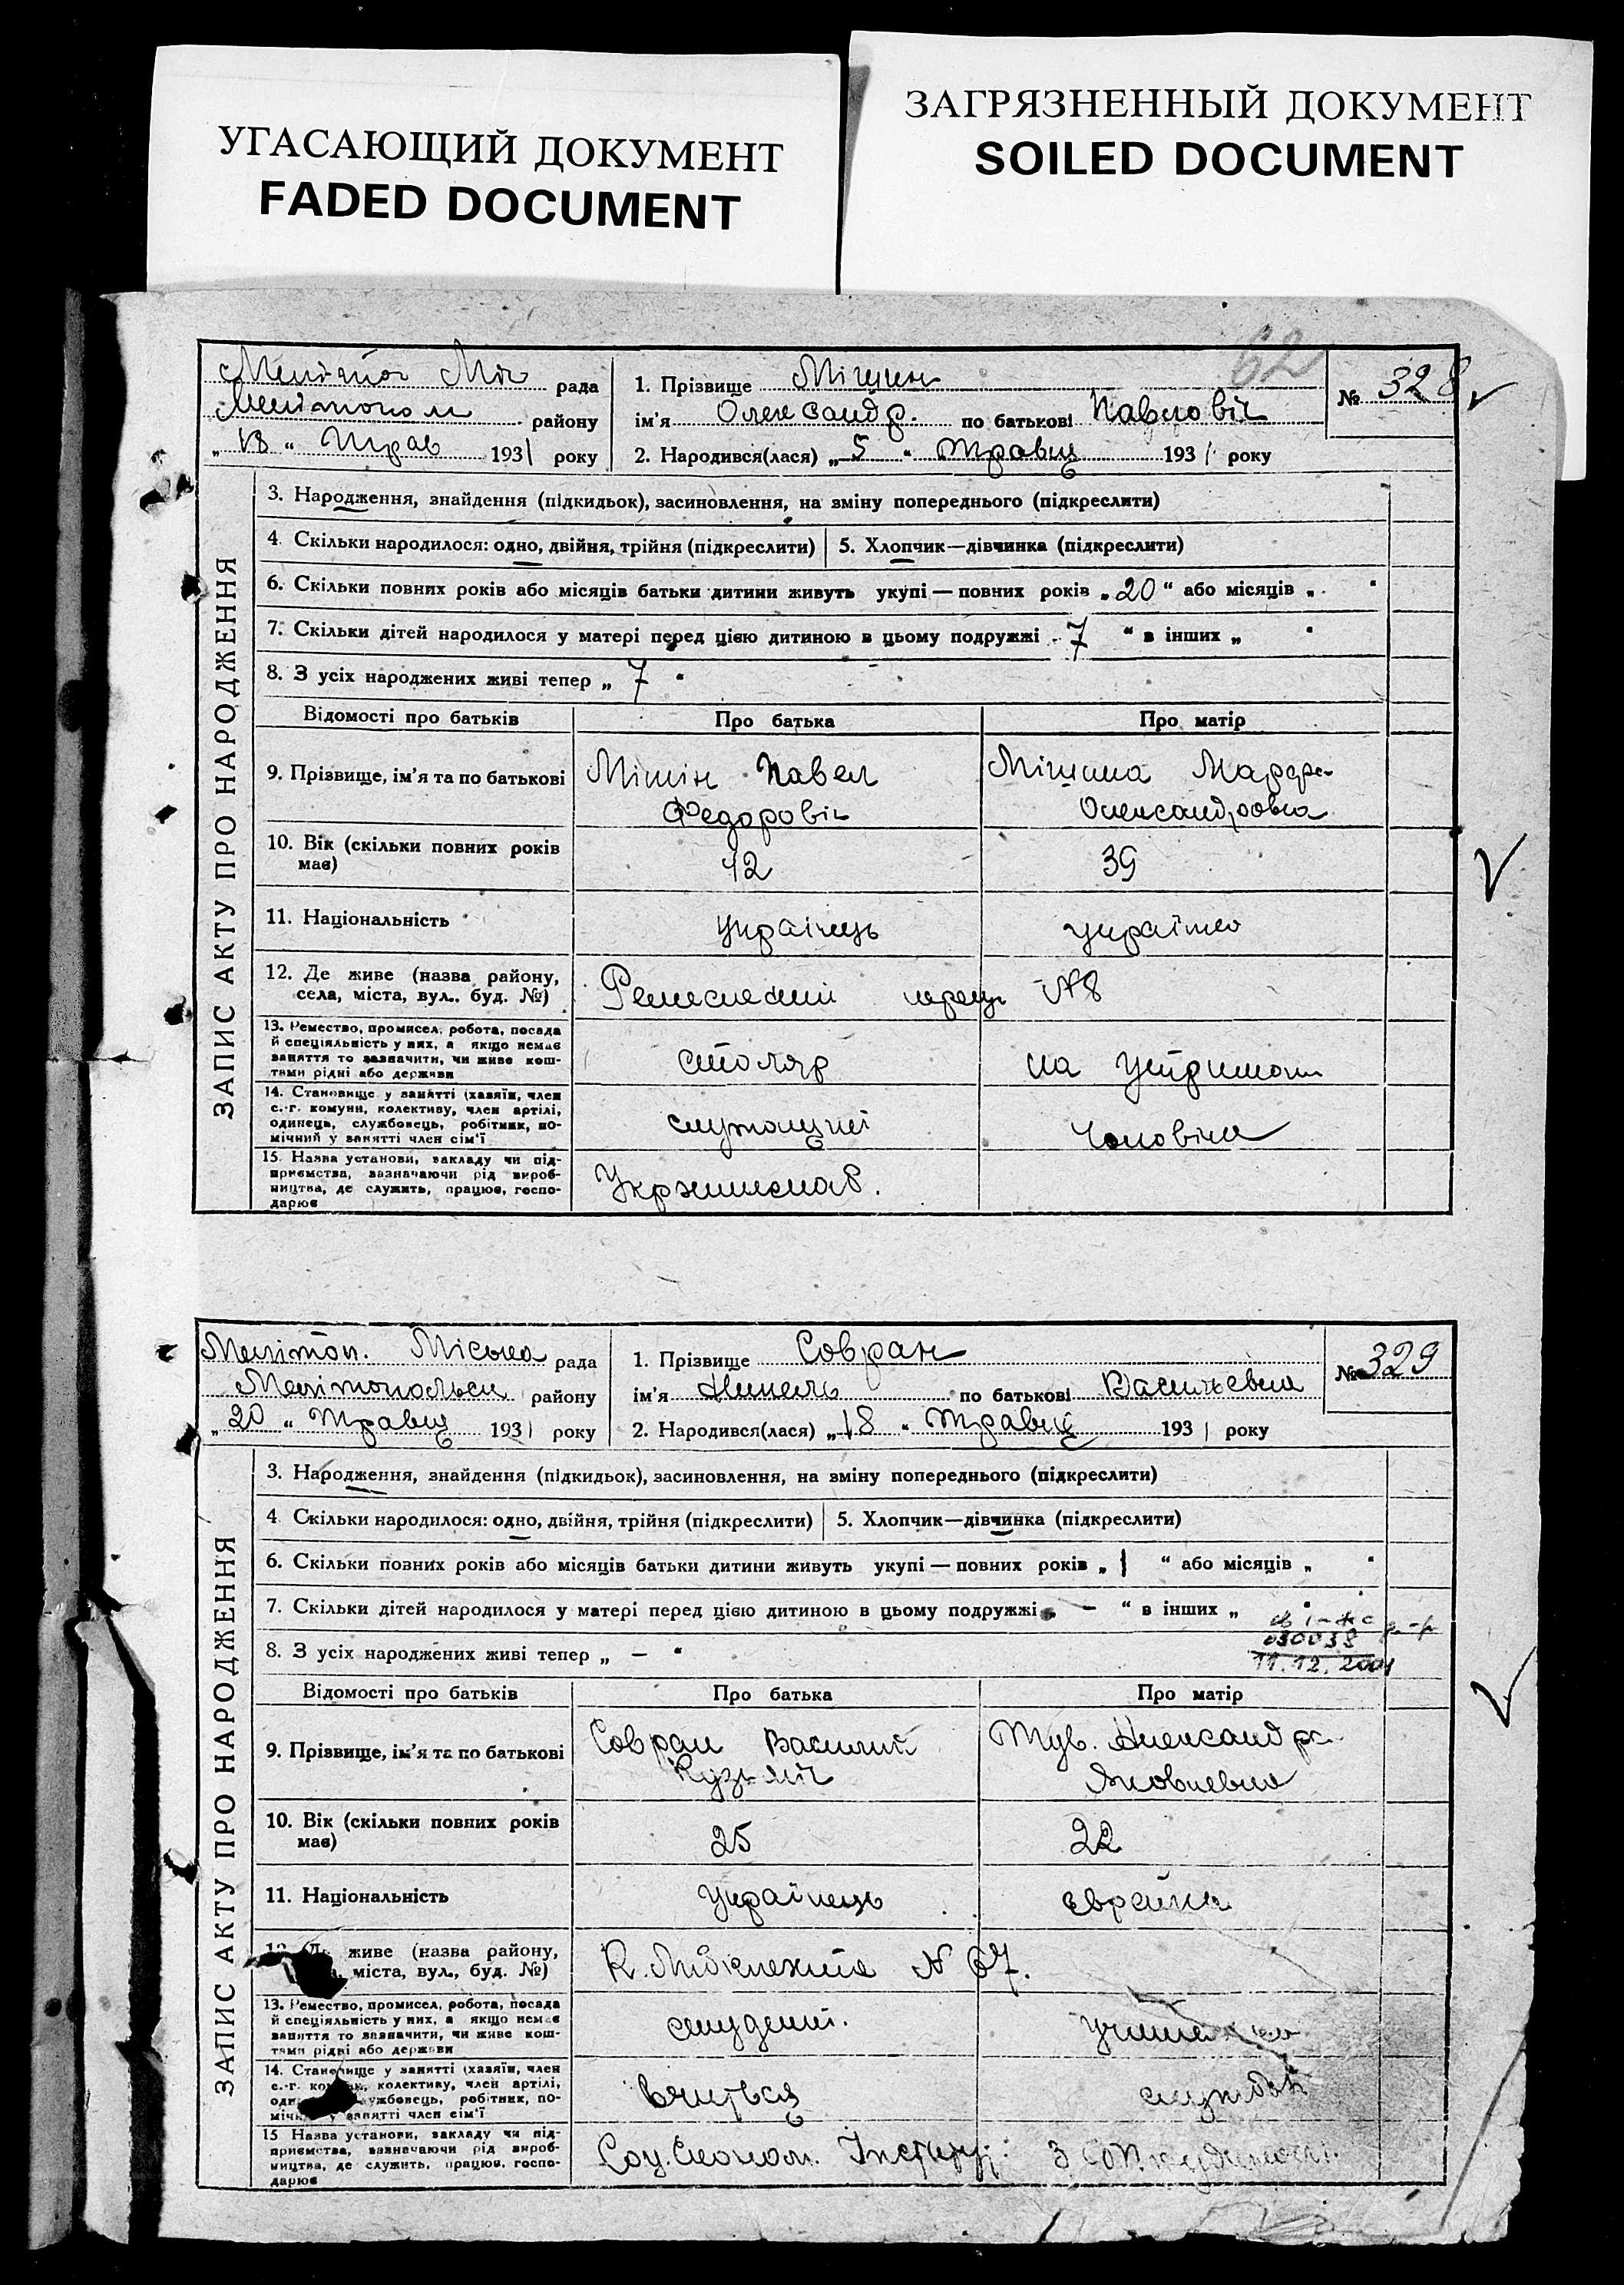 УГАСАЮЩИЙ ДОКУМЕНТ
FADED DOCUMENT
ЗАГРЯЗНЕННЫЙ ДОКУМЕНТ
SOILED DOCUMENT
62
рада
району
„18“ Трав 1931 року
1. Прізвище Мішин
ім'я Олександр. по батькові Павлович
2. Народився(лася) „5“ Травця 1931 року
№ 328
ЗАПИС АКТУ ПРО НАРОДЖЕННЯ
3. Народження, знайдення (підкидьок), засиновлення, на зміну попереднього (підкреслити)
4. Скільки народилося: одно, двійня, трійня (підкреслити) 5. Хлопчик—дівчинка (підкреслити)
6. Скільки повних років або місяців батьки дитини живуть укупі — повних років „20“ або місяців „ “
7. Скільки дітей народилося у матері перед цією дитиною в цьому подружжі „7“ в інших „ “
8. З усіх народжених живі тепер „7“
Відомості про батьків Про батька Про матір
9. Прізвище, ім'я та по батькові Мішін Павел Федоровіч Мішина Марфа Олександровна
10. Вік (скільки повних років має) 42 39
11. Національність українець українка
12. Де живе (назва району, села, міста, вул., буд. №) №8
13. Ремество, промисел, робота, посада й спеціяльність у них, а якщо немає заняття то зазначити, чи живе коштами рідні або держави столяр на утриман
14. Становище у занятті (хазяїн, член с.-г. комуни, колективу, член артілі, одинець, службовець, робітник, помічний у занятті член сім'ї Чоловіка
15. Назва установи, закладу чи підприємства, зазначаючи рід виробництва, де служить, працює, господарює
Меліт́оп. Міська рада
Мелітопольськ району
„20“ Травця 1931 року
1. Прізвище Совран
ім'я Нинель по батькові Васильевна
2. Народився(лася) „18“ Травця 1931 року
№ 329
ЗАПИС АКТУ ПРО НАРОДЖЕННЯ
3. Народження, знайдення (підкидьок), засиновлення, на зміну попереднього (підкреслити)
4. Скільки народилося: одно, двійня, трійня (підкреслити) 5. Хлопчик—дівчинка (підкреслити)
6. Скільки повних років або місяців батьки дитини живуть укупі — повних років „1“ або місяців „ “
7. Скільки дітей народилося у матері перед цією дитиною в цьому подружжі „ — “ в інших „ “
030038
11.12.2001
8. З усіх народжених живі тепер „ — “
Відомості про батьків Про батька Про матір
9. Прізвище, ім'я та по батькові Совран Василий Кузьміч Александра Яковлевна
10. Вік (скільки повних років має) 25 22
11. Національність Українець єврейка
живе (назва району, міста, вул., буд. №) К. Лібкнехта № 67.
13. Ремество, промисел, робота, посада й спеціяльність у них, а якщо немає заняття то зазначити, чи живе коштами рідні або держави студент.
14. Становище у занятті (хазяїн, член с.-г. колективу, член артілі, робітник, помічний у занятті член сім'ї вчиться
15 Назва установи, закладу чи підприємства, зазначаючи рід виробництва, де служить, працює, господарює Соц. Економ. Інститут